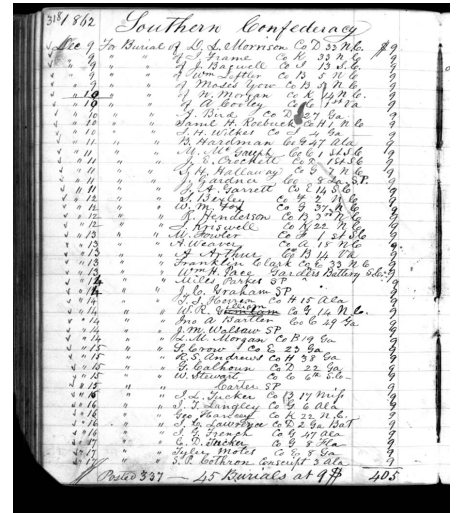 318 1862 Southern Confederacy
Dec 9 For Burial of D. L. Morrison Co D 33 N.C. $9
" 9 " " of J. Frame Co K 33 N.C. 9
" 9 " " of J. Bagwell Co 13 S.C. 9
" 9 " " of Wm Leftler Co B 5 N.C. 9
" 9 " " of Moses Yow Co B 5 N.C. 9
" 10 " " of N. Morgan Co K 14 N.C. 9
" 10 " " of A Corley Co 1st 9
" 10 " " J. Bird Co D 27 Ga 9
" 10 " " Saml H. Roebuck Co H 1 N.C. 9
" 10 " " S. H. Wilkes Co 4 Ga 9
" 11 " " B. Hardman Co G 47 Ala 9
" 11 " " Co 1st S.C. 9
" 11 " " J. E. Crockett Co 1st S.C. 9
" 11 " " H. Hallaway Co G 7 N.C. 9
" 11 " " J. Gardner Co 8 Ga S.P. 9
" 11 " " J. A. Garrett Co 14 S.C. 9
" 12 " " S. Bexley Co F 2 N.C. 9
" 12 " " W. M. Fox Co G 37 N.C. 9
" 12 " " R. Henderson Co B 3rd N.C. 9
" 12 " " J. Kriswell Co K 22 N.C. 9
" 13 " " W. Fowler Co F 1 St S.C. 9
" 13 " " A Weaver Co A 18 N.C. 9
" 13 " " A Arthur Co B 14 Va 9
" 13 " " Franklin Clark Co E 33 N.C. 9
" 13 " " Wm H. Pace Battery 9
" 14 " " Miles Parker SP 9
" 14 " " J. C. Graham SP 9
" 14 " " T. J. Co H 15 Ala 9
" 14 " " W. R. Gilliam Co G 14 N.C. 9
" 14 " " Jno A Bartlet Co E 49 Ga 9
" 14 " " J. M. Walsaw SP 9
" 14 " " L. M. Morgan Co B 19 Ga 9
" 15 " " S. Crow Co E 23 Ga 9
" 15 " " R. S. Andrews Co H 38 Ga 9
" 15 " " G. Calhoun Co D 22 Ga 9
" 15 " " W. Stewart Co E 6th S.C. 9
" 15 " " Carter SP 9
" 15 " " J. L. Tucker Co B 17 Miss 9
" 16 " " J. T. Langley Co G 6 Ala 9
" 16 " " Geo Harvey Co K 22 N.C. 9
" 16 " " S. C. Lawrence Co D 2 Ga Bat 9
" 16 " " S. G. French Co G 47 Ala 9
" 17 " " C. D. Tucker Co G 8 Fla 9
" 17 " " Tyler Motes Co E 8 Ga 9
" 17 " " S. P. Cothron Conscript 3 Ala 9
Posted 337 — 45 Burials at 9$ 405